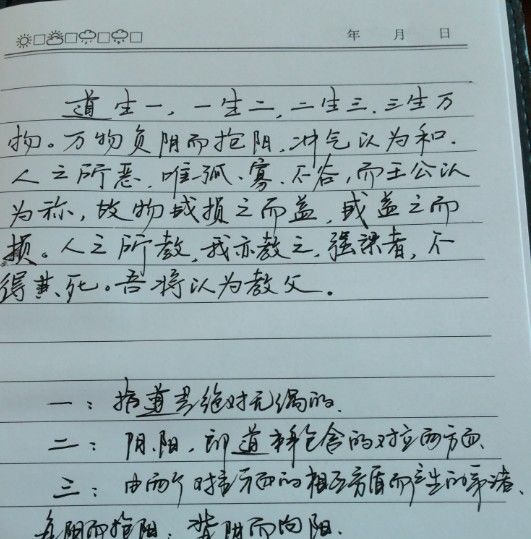 年 月 日
道生一，一生二，二生三，三生万
物。万物负阴而抱阳，冲气以为和.
人之所恶，唯孤、寡、不谷，而王公以
为称，故物或损之而益，或益之而
损。人之所教，我亦教之，强梁者，不
得其死。吾将以为教父。
一：指道是绝对无偶的.
二：阴.阳，即道本包含的对立两方面、
三：由两个对方面的相互矛盾而产生的
负阴而抱阳：背阴而向阳.